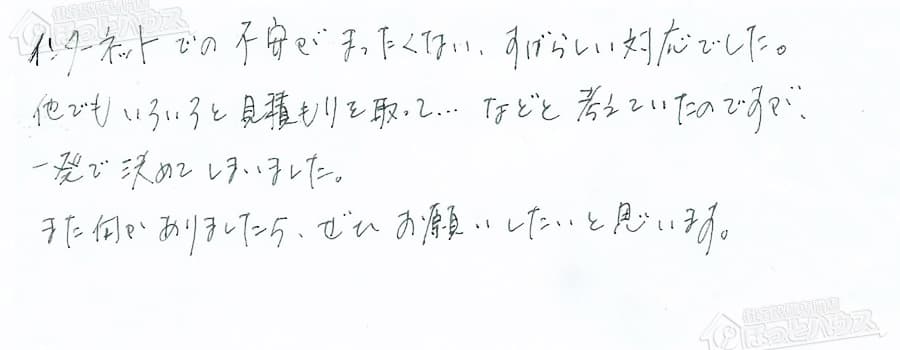 インターネットでの不安がまったくない、すばらしい対応でした。
他でもいろいろと見積もりを取って… などと考えていたのですが、
一発で決めてしまいました。
また何かありましたら、ぜひお願いしたいと思います。
住宅設備専門店
ほっとハウス
住宅設備専門店
ほっとハウス